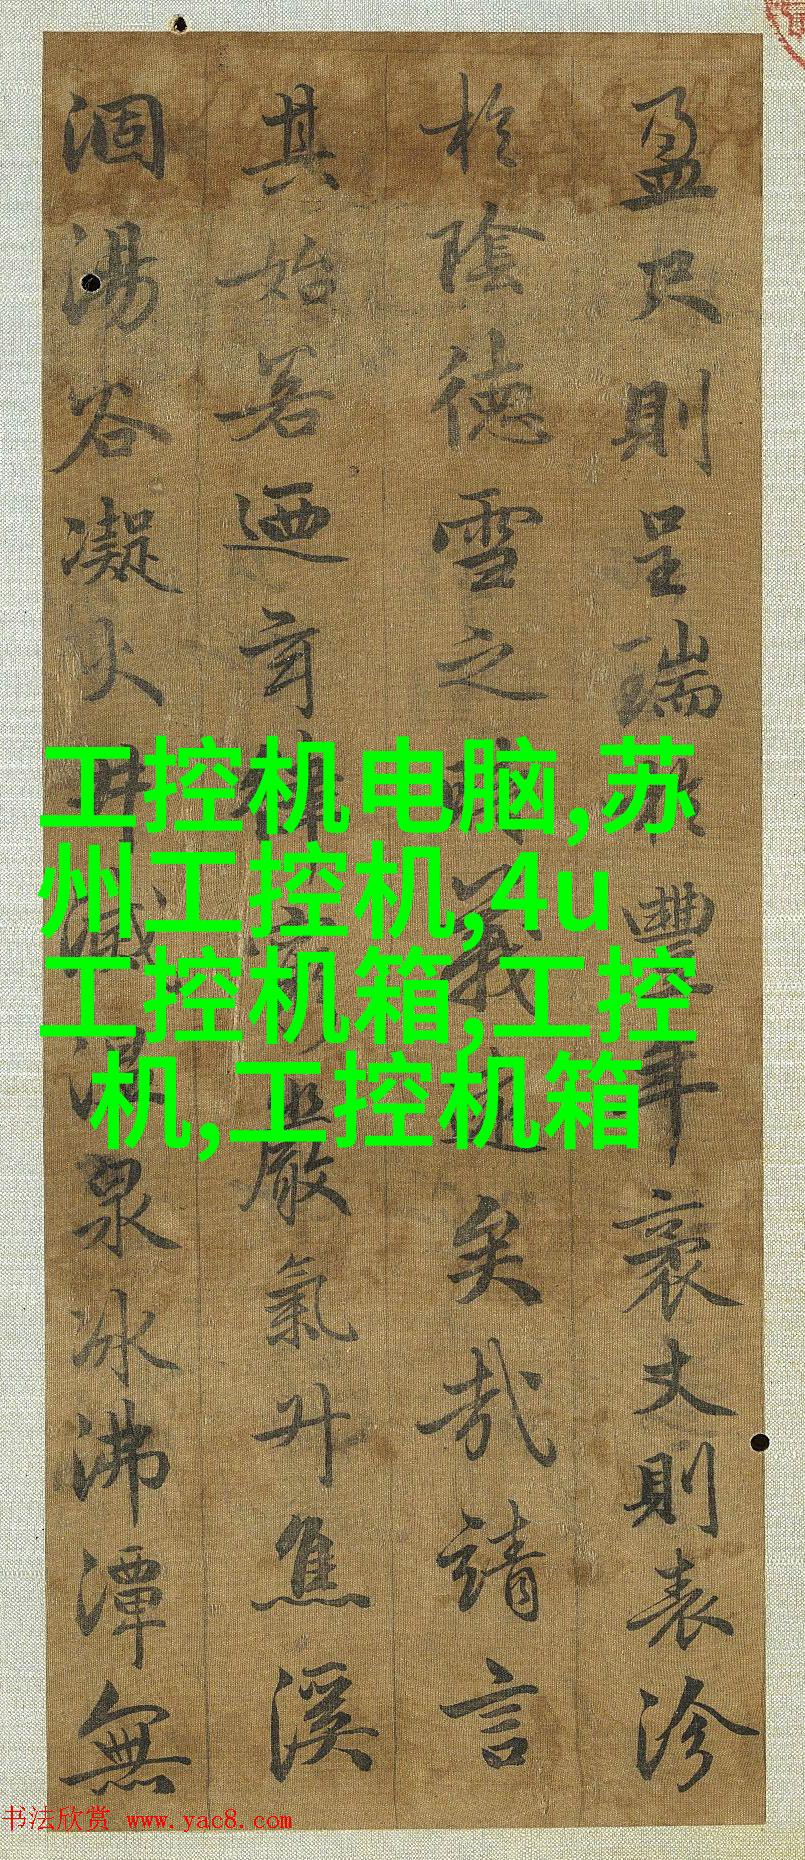 盈尺則呈瑞於豐年袤丈則表沴
於陰德雪之時義遠矣哉請言
其始若迺玄律窮嚴氣升焦溪
涸湯谷凝火井滅溫泉冰沸潭無
工控机电脑,苏
州工控机,4u
工控机箱,工控
机,工控机箱
书法欣赏 www.yac8.com